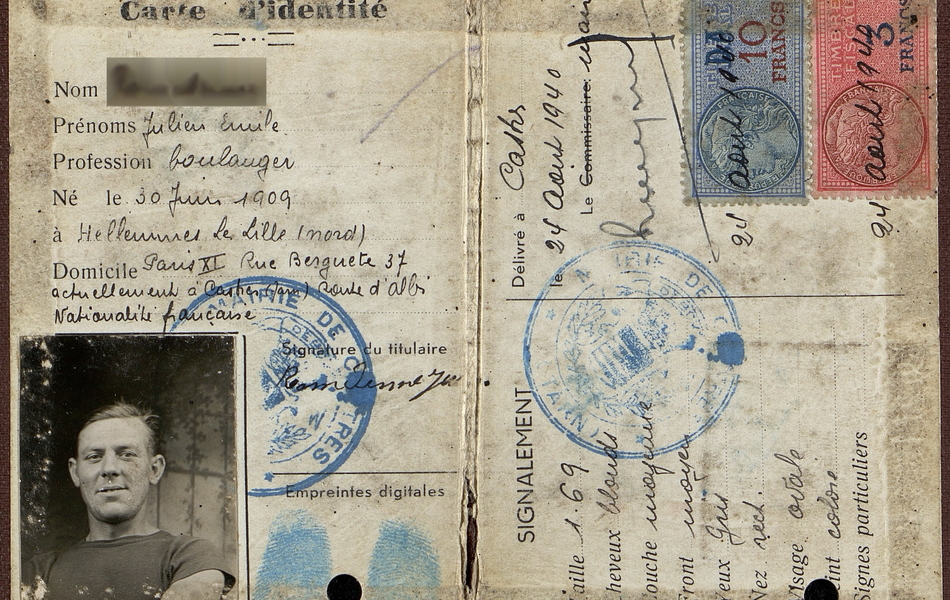 Carte d'identité
Nom
Prénoms Julien Emile
Profession boulanger
Né le 30 Juin 1909
à Hellemmes Lez Lille (nord)
Domicile Paris XI Rue Berguete 37
actuellement à Castres (Tarn) Route d'albi
Nationalité française
MAIRIE DE CASTRES
Signature du titulaire
Empreintes digitales
Délivré à Castres
le 24 Aout 1940
Le Commissaire
MAIRIE DE
(TARN)
10 FRANCS
24 aout
TIMBRE FISCAL
3 FRANCS
24 aout 1940
SIGNALEMENT
aille 1.69
heveux blonds
ouche moyenne
Front moyen
eux Gris
Nez rect.
isage ovale
int coloré
Signes particuliers